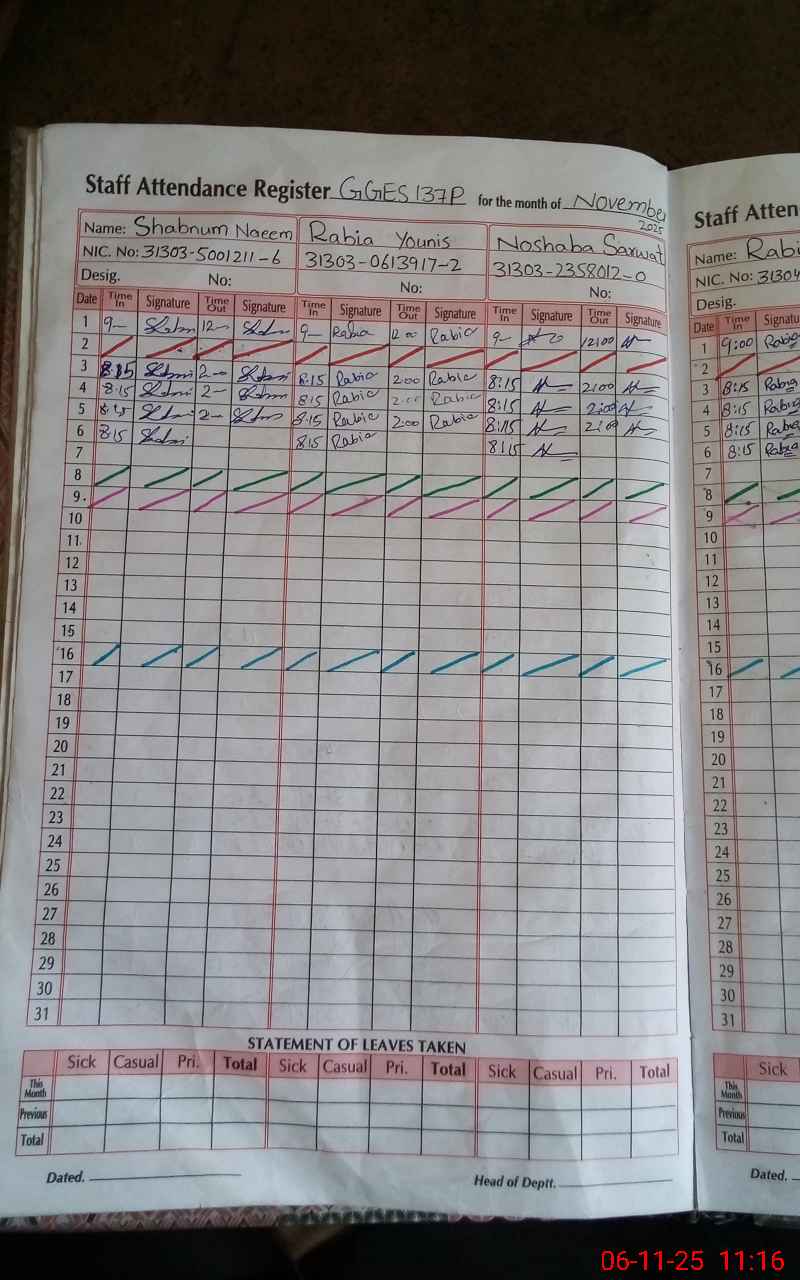 Staff Attendance Register GGES 137P for the month of November 2025
Name: Shabnum Naeem Rabia Younis Noshaba Sarwat
NIC. No: 31303-5001211-6 31303-0613917-2 31303-2358012-0
Desig. No: No: No:
Date Time In Signature Time Out Signature Time In Signature Time Out Signature Time In Signature Time Out Signature
1 9- 12- 9- Rabia 12:00 Rabia 9- 12:00
2
3 8:15 2-00 8:15 Rabia 2:00 Rabia 8:15 2:00
4 8:15 2- 8:15 Rabia 2:00 Rabia 8:15 2:00
5 8:15 2- 8:15 Rabia 2:00 Rabia 8:15 2:00
6 8:15 8:15 Rabia 8:15
7
8
9.
10
11
12
13
14
15
16
17
18
19
20
21
22
23
24
25
26
27
28
29
30
31
STATEMENT OF LEAVES TAKEN
Sick Casual Pri. Total Sick Casual Pri. Total Sick Casual Pri. Total
This Month
Previous
Total
Dated. Head of Deptt.
Staff Atten
Name: Rabi
NIC. No: 31304
Desig.
Date Time In Signatu
1 9:00 Rabia
2
3 8:15 Rabia
4 8:15 Rabia
5 8:15 Rabia
6 8:15 Rabia
7
8
9
10
11
12
13
14
15
16
17
18
19
20
21
22
23
24
25
26
27
28
29
30
31
Sick
This Month
Previous
Total
Dated.
06-11-25 11:16